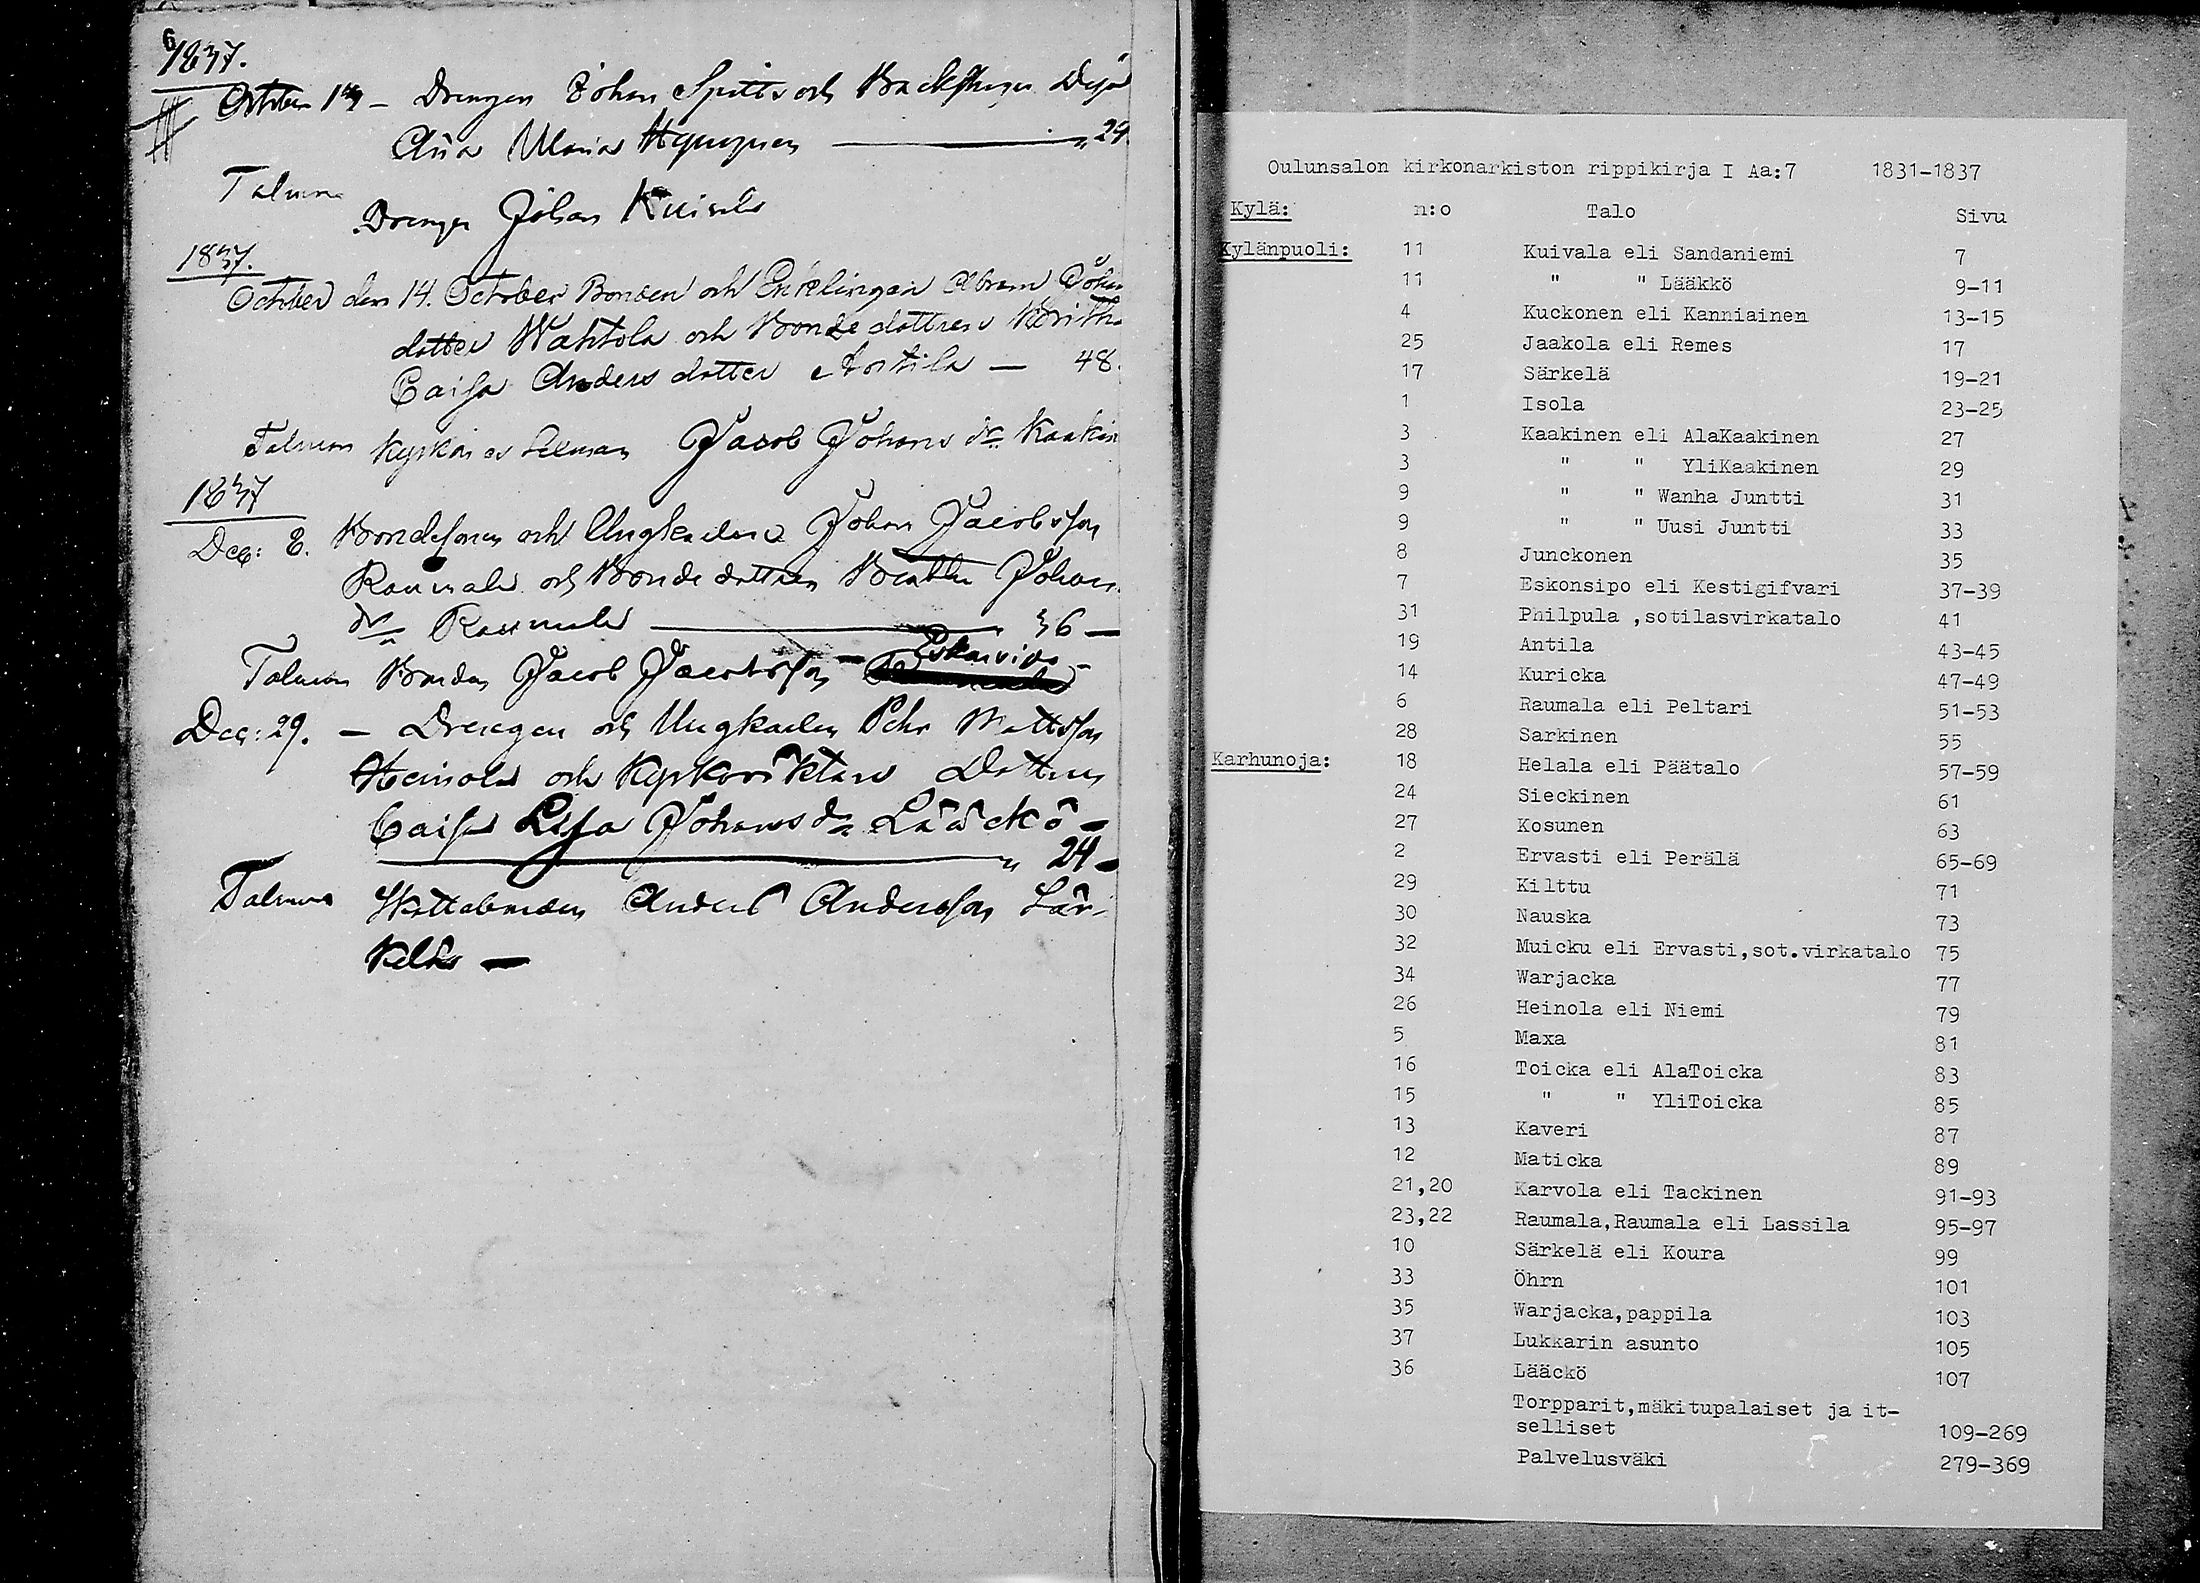 6
1837.
October 14 – Drengen Johan Spitts och
Anna Maria Hynynen 24.
Talman
Drengen Johan Kuivala
1837.
October den 14. October Bonden och Enklingen Abram Johan
dotter Wahtola och Bonde dottren
Caisa Anders dotter Anttila – 48.
Talman Jacob Johans
1837
Dec: 8. Bondesonen och Ungkarlen Johan Jacobsson
Raumala och Bonde dottren Johan
dr Raumala 36 –
Talman Bonden Jacob Jacobsson –
Dec: 29. – Drengen och Ungkarlen Pehr Mattsson
Heinola och Kyrkoväktare Dottren
Caisa Lisa Johans dr Lääckö –
" 24 –
Talman Anders Andersson Sär-
kelä –
Oulunsalon kirkonarkiston rippikirja I Aa:7 1831-1837
Kylä: n:o Talo Sivu
Kylänpuoli: 11 Kuivala eli Sandaniemi 7
11 " " Lääkkö 9-11
4 Kuckonen eli Kanniainen 13-15
25 Jaakola eli Remes 17
17 Särkelä 19-21
1 Isola 23-25
3 Kaakinen eli AlaKaakinen 27
3 " " YliKaakinen 29
9 " " Wanha Juntti 31
9 " " Uusi Juntti 33
8 Junckonen 35
7 Eskonsipo eli Kestigifvari 37-39
31 Philpula ,sotilasvirkatalo 41
19 Antila 43-45
14 Kuricka 47-49
6 Raumala eli Peltari 51-53
28 Sarkinen 55
Karhunoja: 18 Helala eli Päätalo 57-59
24 Sieckinen 61
27 Kosunen 63
2 Ervasti eli Perälä 65-69
29 Kilttu 71
30 Nauska 73
32 Muicku eli Ervasti,sot.virkatalo 75
34 Warjacka 77
26 Heinola eli Niemi 79
5 Maxa 81
16 Toicka eli AlaToicka 83
15 " " YliToicka 85
13 Kaveri 87
12 Maticka 89
21,20 Karvola eli Tackinen 91-93
23,22 Raumala,Raumala eli Lassila 95-97
10 Särkelä eli Koura 99
33 Öhrn 101
35 Warjacka,pappila 103
37 Lukkarin asunto 105
36 Lääckö 107
Torpparit,mäkitupalaiset ja it-
selliset 109-269
Palvelusväki 279-369